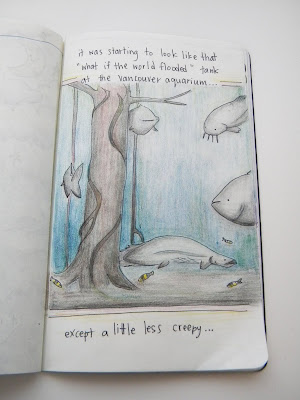 it was starting to look like that
"what if the world flooded" tank
at the vancouver aquarium...
except a little less creepy...